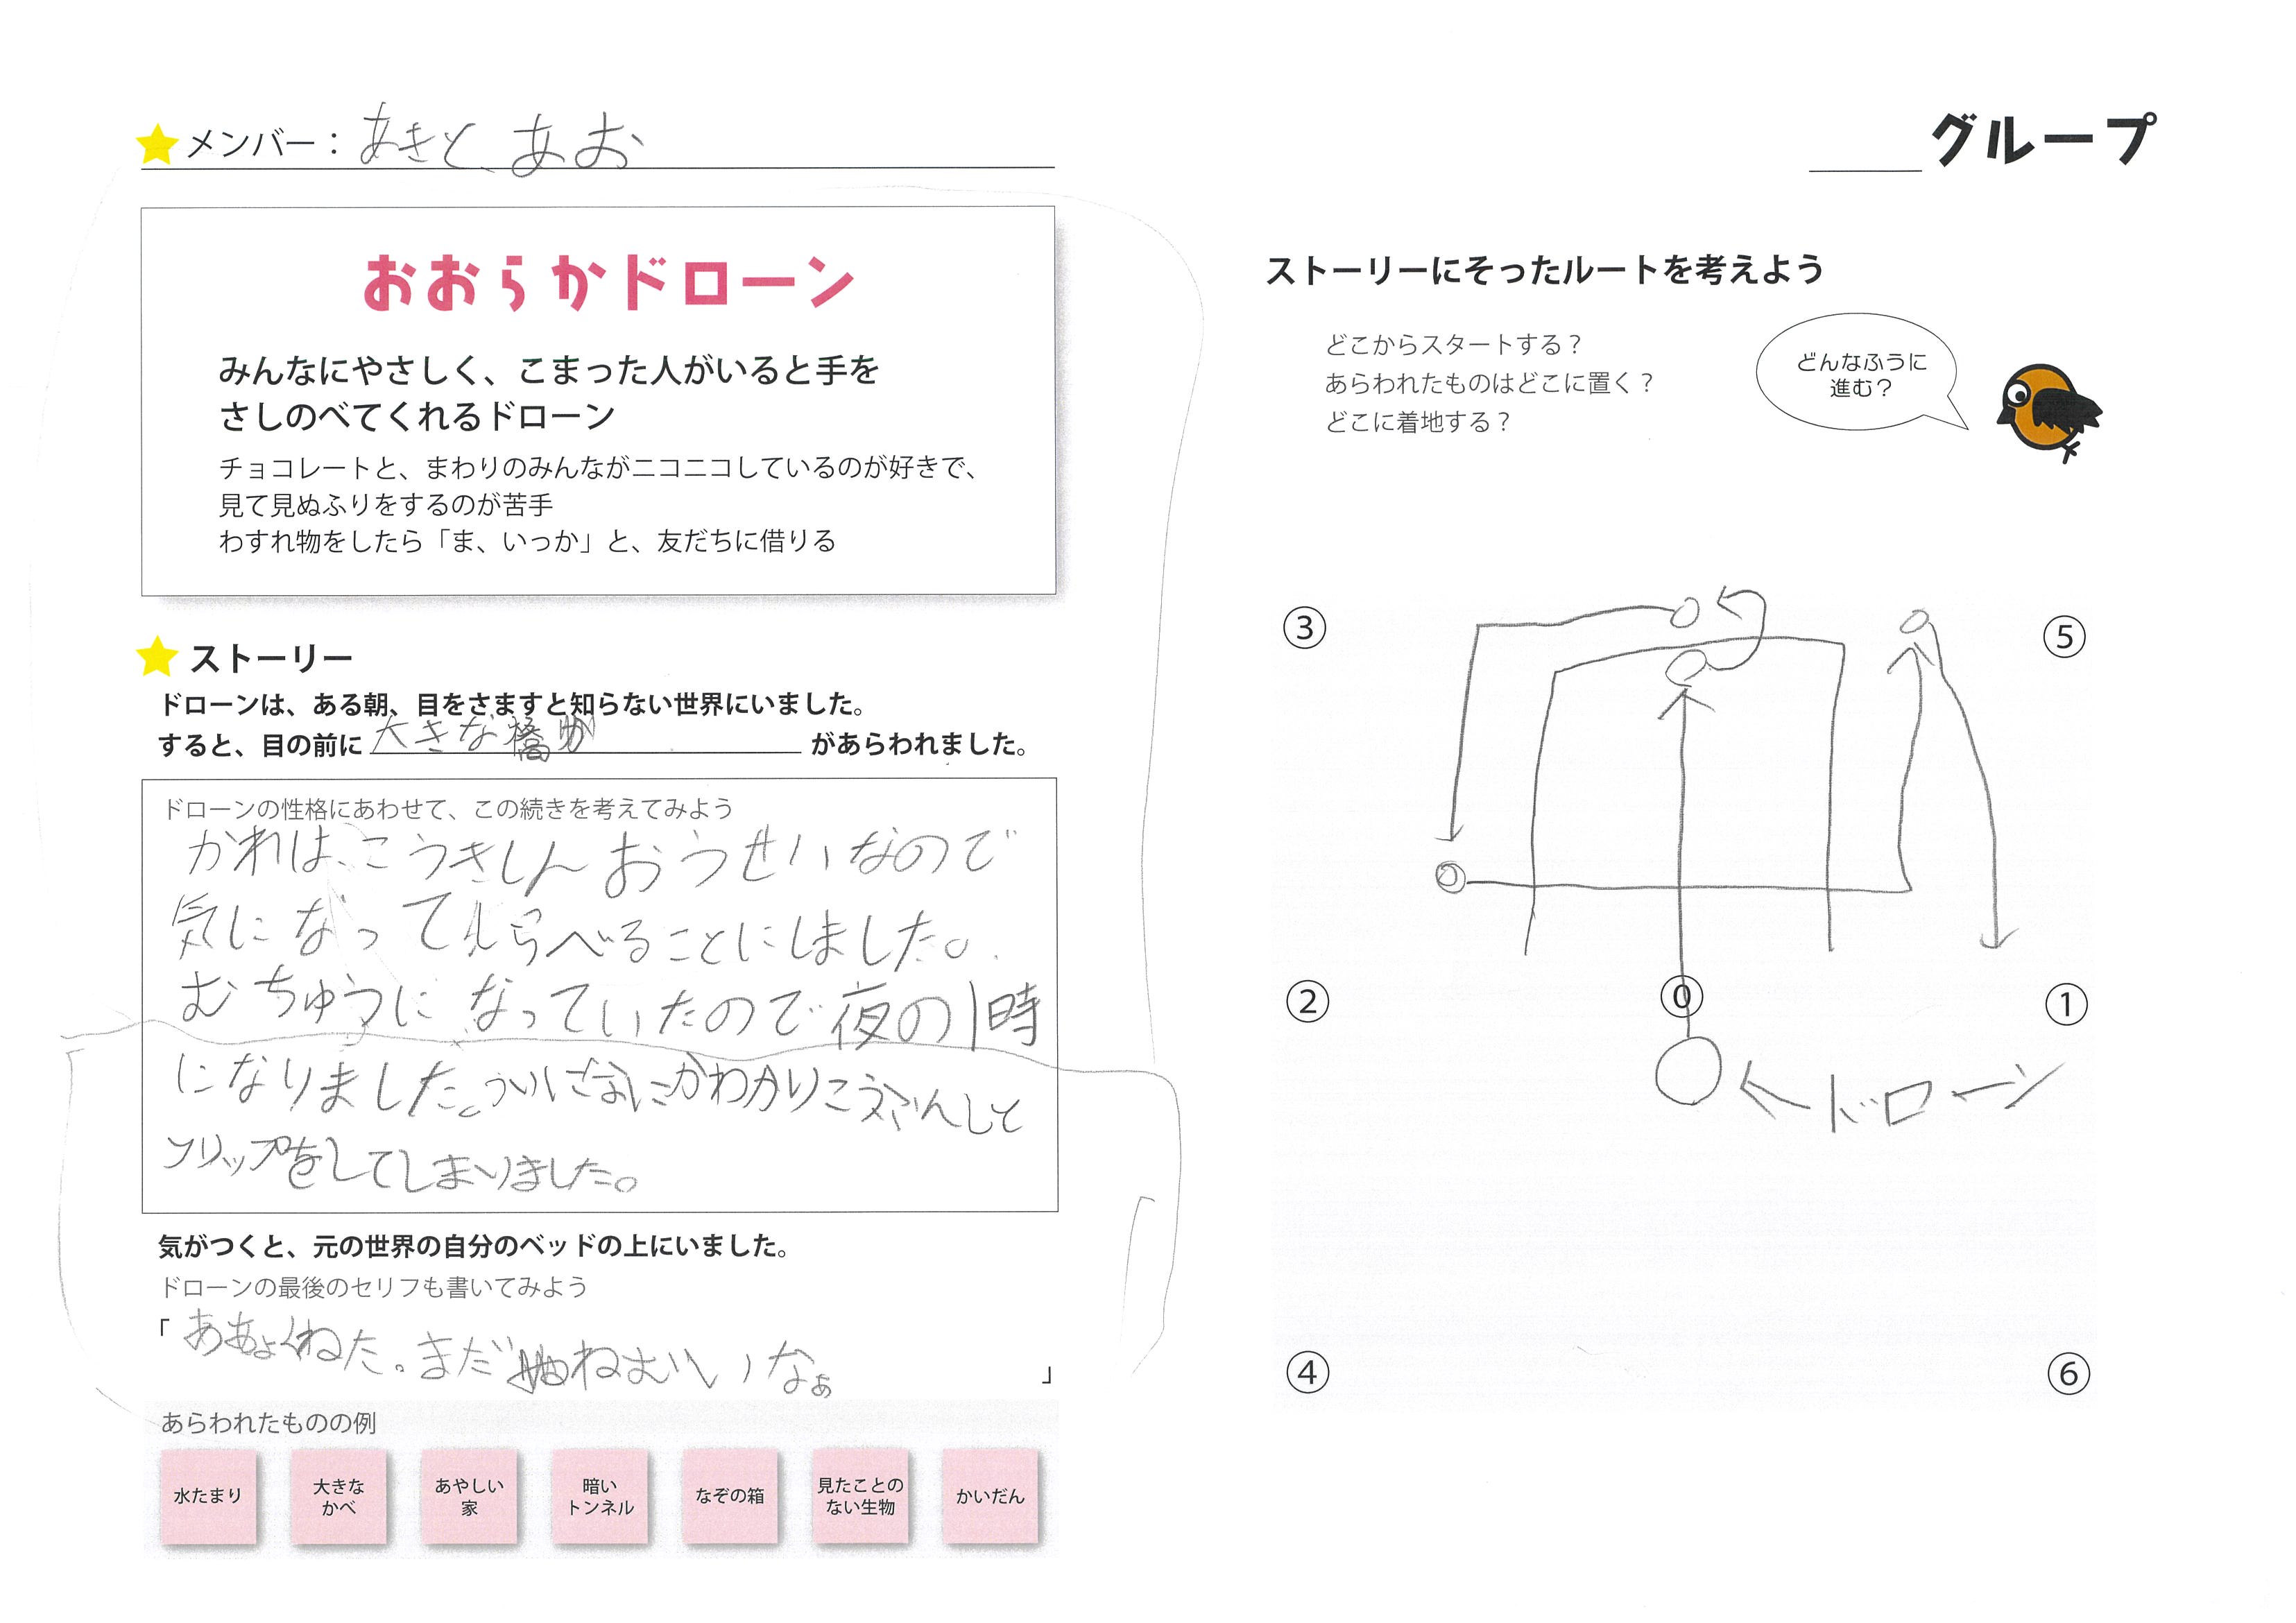 メンバー：あきと、あお
グループ
おおらかドローン
みんなにやさしく、こまった人がいると手を
さしのべてくれるドローン
チョコレートと、まわりのみんながニコニコしているのが好きで、
見て見ぬふりをするのが苦手
わすれ物をしたら「ま、いっか」と、友だちに借りる
ストーリー
ドローンは、ある朝、目をさますと知らない世界にいました。
すると、目の前に 大きな橋 があらわれました。
ドローンの性格にあわせて、この続きを考えてみよう
かれは、こうきしんおうせいなので
気になってしらべることにしました。
むちゅうになっていたので夜の1時
になりました。ついになにかわかりこうふんして
フリップをしてしまいました。
気がつくと、元の世界の自分のベッドの上にいました。
ドローンの最後のセリフも書いてみよう
「ああよくねた。まだねむいなぁ」
あらわれたものの例
水たまり
大きな
かべ
あやしい
家
暗い
トンネル
なぞの箱
見たことの
ない生物
かいだん
ストーリーにそったルートを考えよう
どこからスタートする？
あらわれたものはどこに置く？
どこに着地する？
どんなふうに
進む？
③
⑤
②
⓪
①
←ドローン
④
⑥